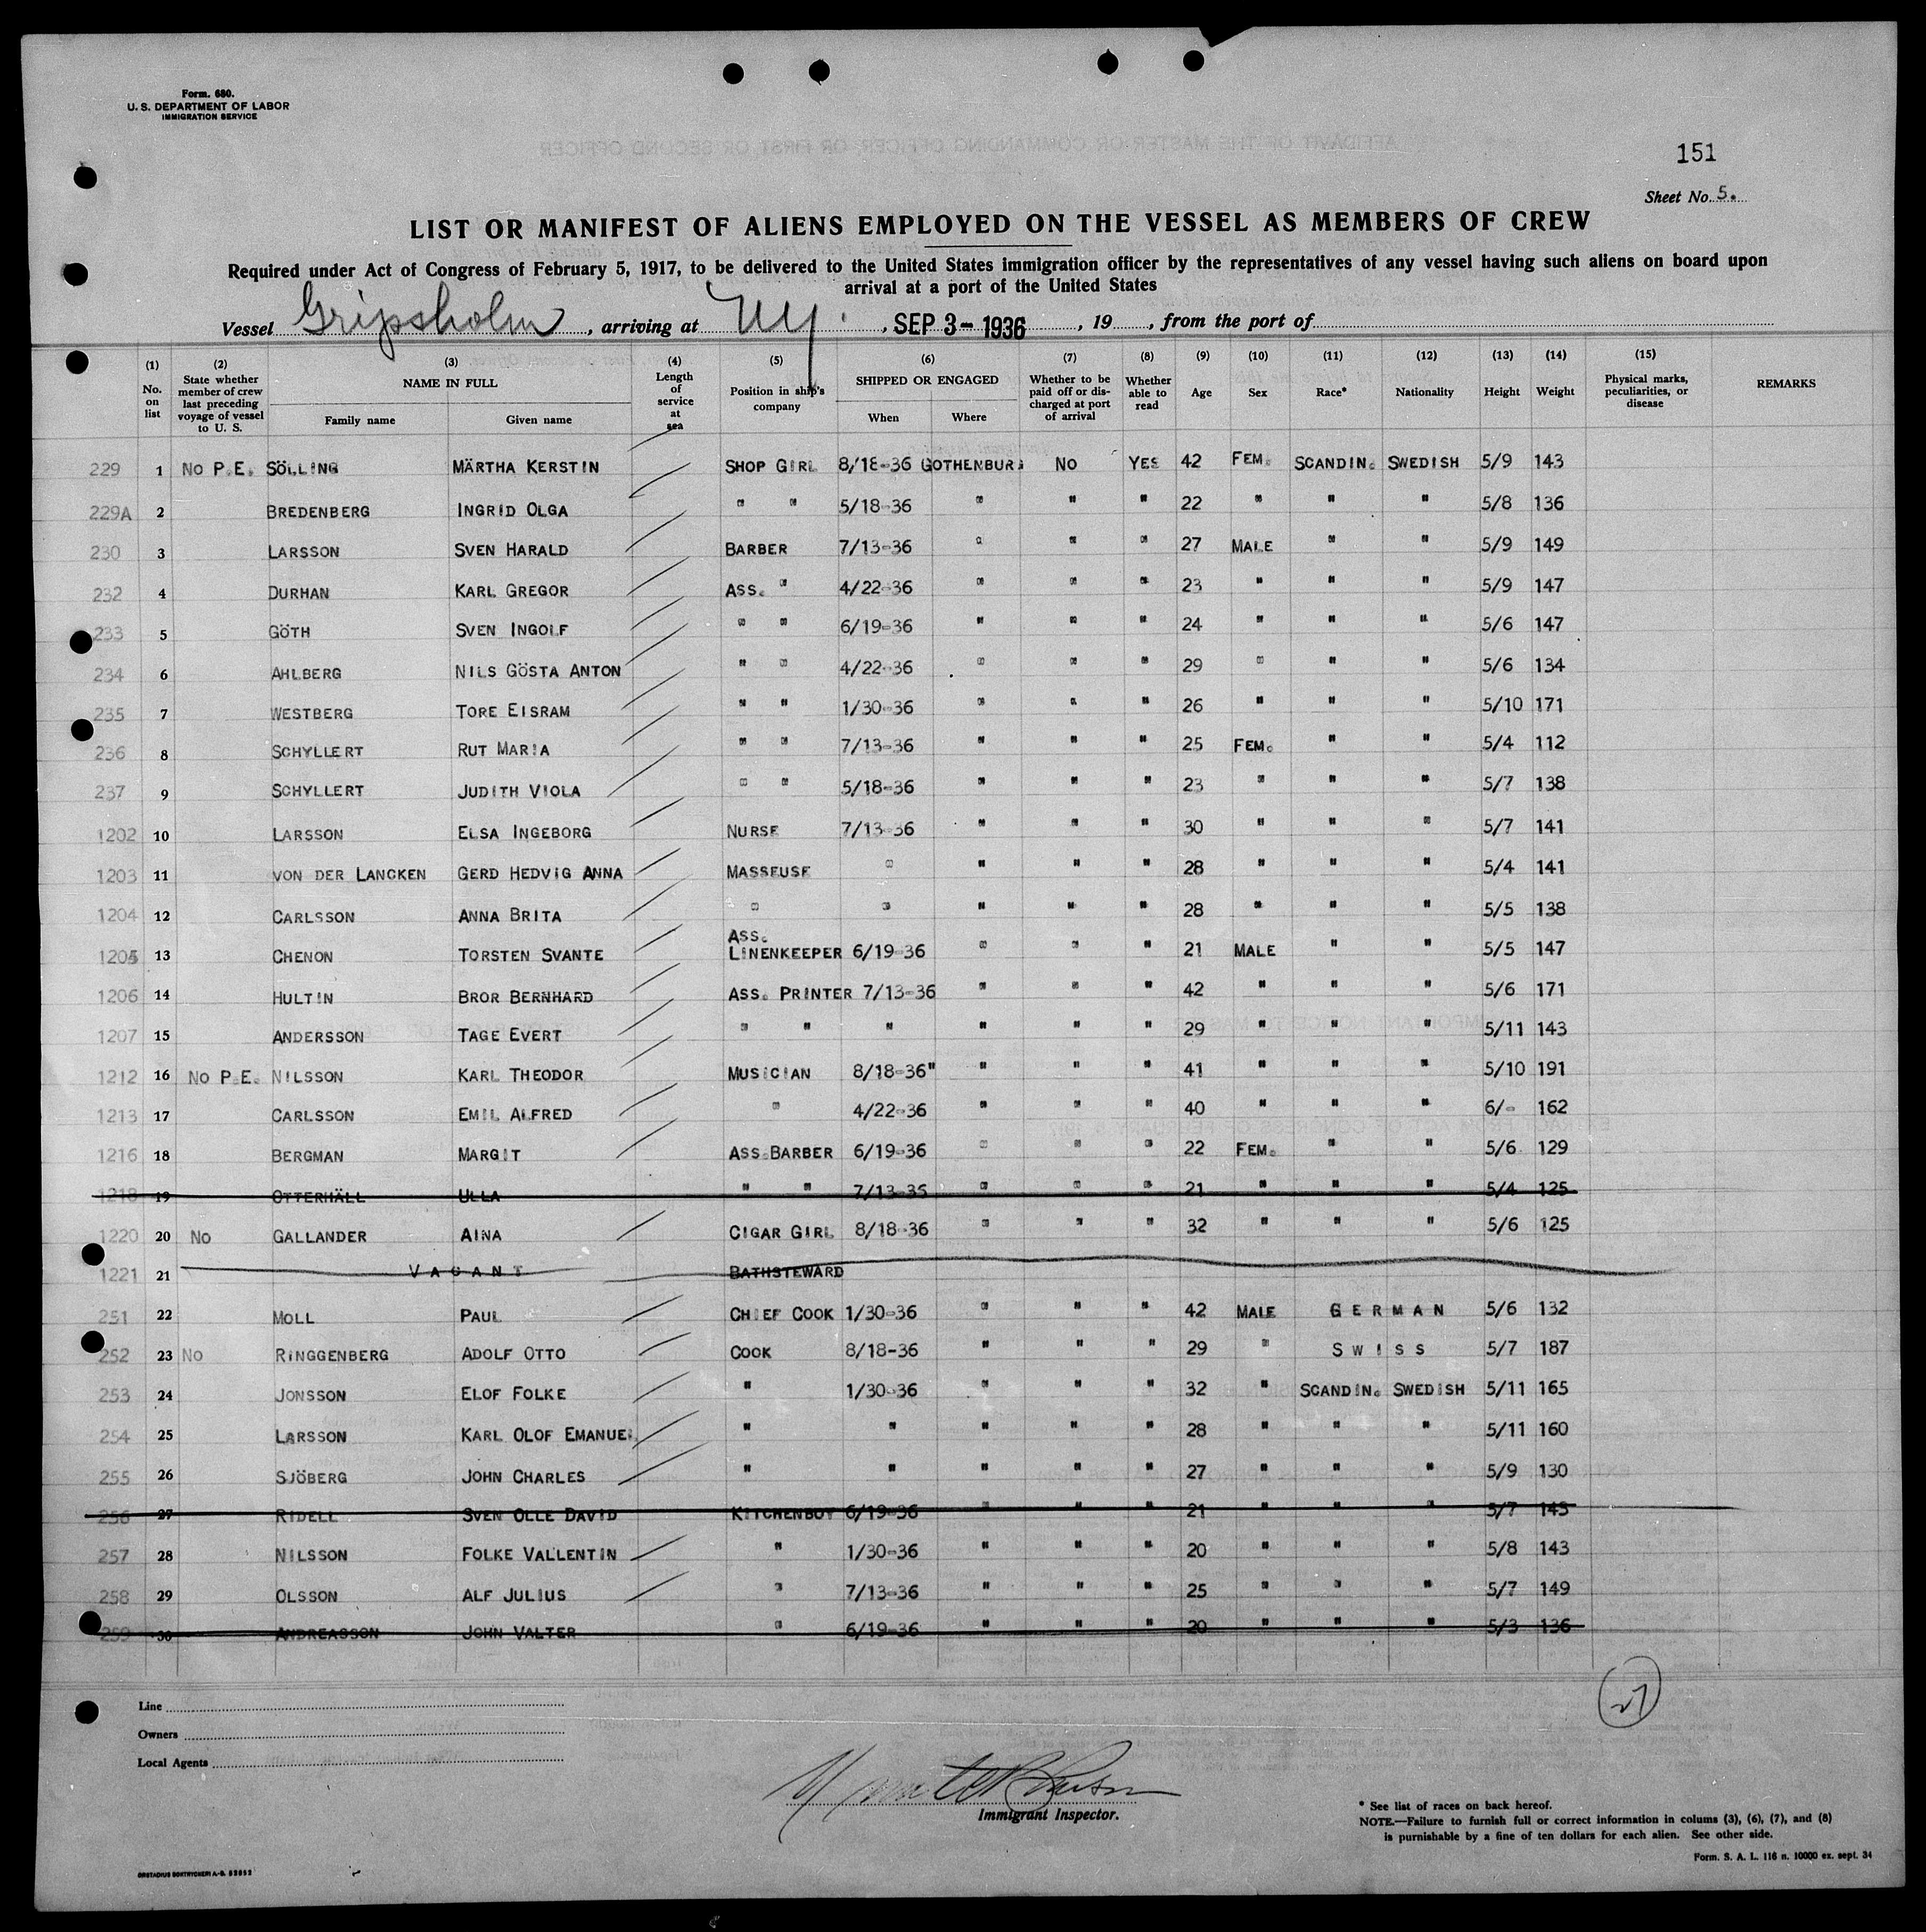 Form. 680.
U. S. DEPARTMENT OF LABOR
IMMIGRATION SERVICE
151
Sheet No. 5.
LIST OR MANIFEST OF ALIENS EMPLOYED ON THE VESSEL AS MEMBERS OF CREW
Required under Act of Congress of February 5, 1917, to be delivered to the United States immigration officer by the representatives of any vessel having such aliens on board upon
arrival at a port of the United States
Vessel Gripsholm, arriving at NY., SEP 3- 1936, 19, from the port of
(1) No. on list
(2) State whether member of crew last preceding voyage of vessel to U. S.
(3) NAME IN FULL Family name Given name
(4) Length of service at sea
(5) Position in ship's company
(6) SHIPPED OR ENGAGED When Where
(7) Whether to be paid off or discharged at port of arrival
(8) Whether able to read
(9) Age
(10) Sex
(11) Race*
(12) Nationality
(13) Height
(14) Weight
(15) Physical marks, peculiarities, or disease
REMARKS
229 1 NO P.E. SÖLLING MÄRTHA KERSTIN SHOP GIRL 8/18-36 GOTHENBURG NO YES 42 FEM. SCANDIN. SWEDISH 5/9 143
229A 2 BREDENBERG INGRID OLGA " " 5/18-36 " " " 22 " " " 5/8 136
230 3 LARSSON SVEN HARALD BARBER 7/13-36 " " " 27 MALE " " 5/9 149
232 4 DURHAN KARL GREGOR ASS. " 4/22-36 " " " 23 " " " 5/9 147
233 5 GÖTH SVEN INGOLF " " 6/19-36 " " " 24 " " " 5/6 147
234 6 AHLBERG NILS GÖSTA ANTON " " 4/22-36 " " " 29 " " " 5/6 134
235 7 WESTBERG TORE EISRAM " " 1/30-36 " " " 26 " " " 5/10 171
236 8 SCHYLLERT RUT MARIA " " 7/13-36 " " " 25 FEM. " " 5/4 112
237 9 SCHYLLERT JUDITH VIOLA " " 5/18-36 " " " 23 " " " 5/7 138
1202 10 LARSSON ELSA INGEBORG NURSE 7/13-36 " " " 30 " " " 5/7 141
1203 11 VON DER LANCKEN GERD HEDVIG ANNA MASSEUSE " " " " 28 " " " 5/4 141
1204 12 CARLSSON ANNA BRITA " " " " " 28 " " " 5/5 138
1205 13 CHENON TORSTEN SVANTE ASS. LINENKEEPER 6/19-36 " " " 21 MALE " " 5/5 147
1206 14 HULTIN BROR BERNHARD ASS. PRINTER 7/13-36 " " " 42 " " " 5/6 171
1207 15 ANDERSSON TAGE EVERT " " " " " " 29 " " " 5/11 143
1212 16 NO P.E. NILSSON KARL THEODOR MUSICIAN 8/18-36" " " " 41 " " " 5/10 191
1213 17 CARLSSON EMIL ALFRED " 4/22-36 " " " 40 " " " 6/- 162
1216 18 BERGMAN MARGIT ASS.BARBER 6/19-36 " " " 22 FEM. " " 5/6 129
1218 19 OTTERHÄLL ULLA " " 7/13-35 " " " 21 " " " 5/4 125
1220 20 NO GALLANDER AINA CIGAR GIRL 8/18-36 " " " 32 " " " 5/6 125
1221 21 VACANT BATHSTEWARD
251 22 MOLL PAUL CHIEF COOK 1/30-36 " " " 42 MALE GERMAN 5/6 132
252 23 NO RINGGENBERG ADOLF OTTO COOK 8/18-36 " " " 29 " SWISS 5/7 187
253 24 JONSSON ELOF FOLKE " 1/30-36 " " " 32 " SCANDIN. SWEDISH 5/11 165
254 25 LARSSON KARL OLOF EMANUEL " " " " " 28 " " " 5/11 160
255 26 SJÖBERG JOHN CHARLES " " " " " 27 " " " 5/9 130
256 27 RIDELL SVEN OLLE DAVID KITCHENBOY 6/19-36 " " " 21 " " " 5/7 143
257 28 NILSSON FOLKE VALLENTIN " 1/30-36 " " " 20 " " " 5/8 143
258 29 OLSSON ALF JULIUS " 7/13-36 " " " 25 " " " 5/7 149
259 30 ANDREASSON JOHN VALTER " 6/19-36 " " " 20 " " " 5/3 136
27
Line
Owners
Local Agents
Immigrant Inspector.
* See list of races on back hereof.
NOTE.—Failure to furnish full or correct information in colums (3), (6), (7), and (8)
is punishable by a fine of ten dollars for each alien. See other side.
Form. S. A. L. 116 n. 10000 ex. sept. 34